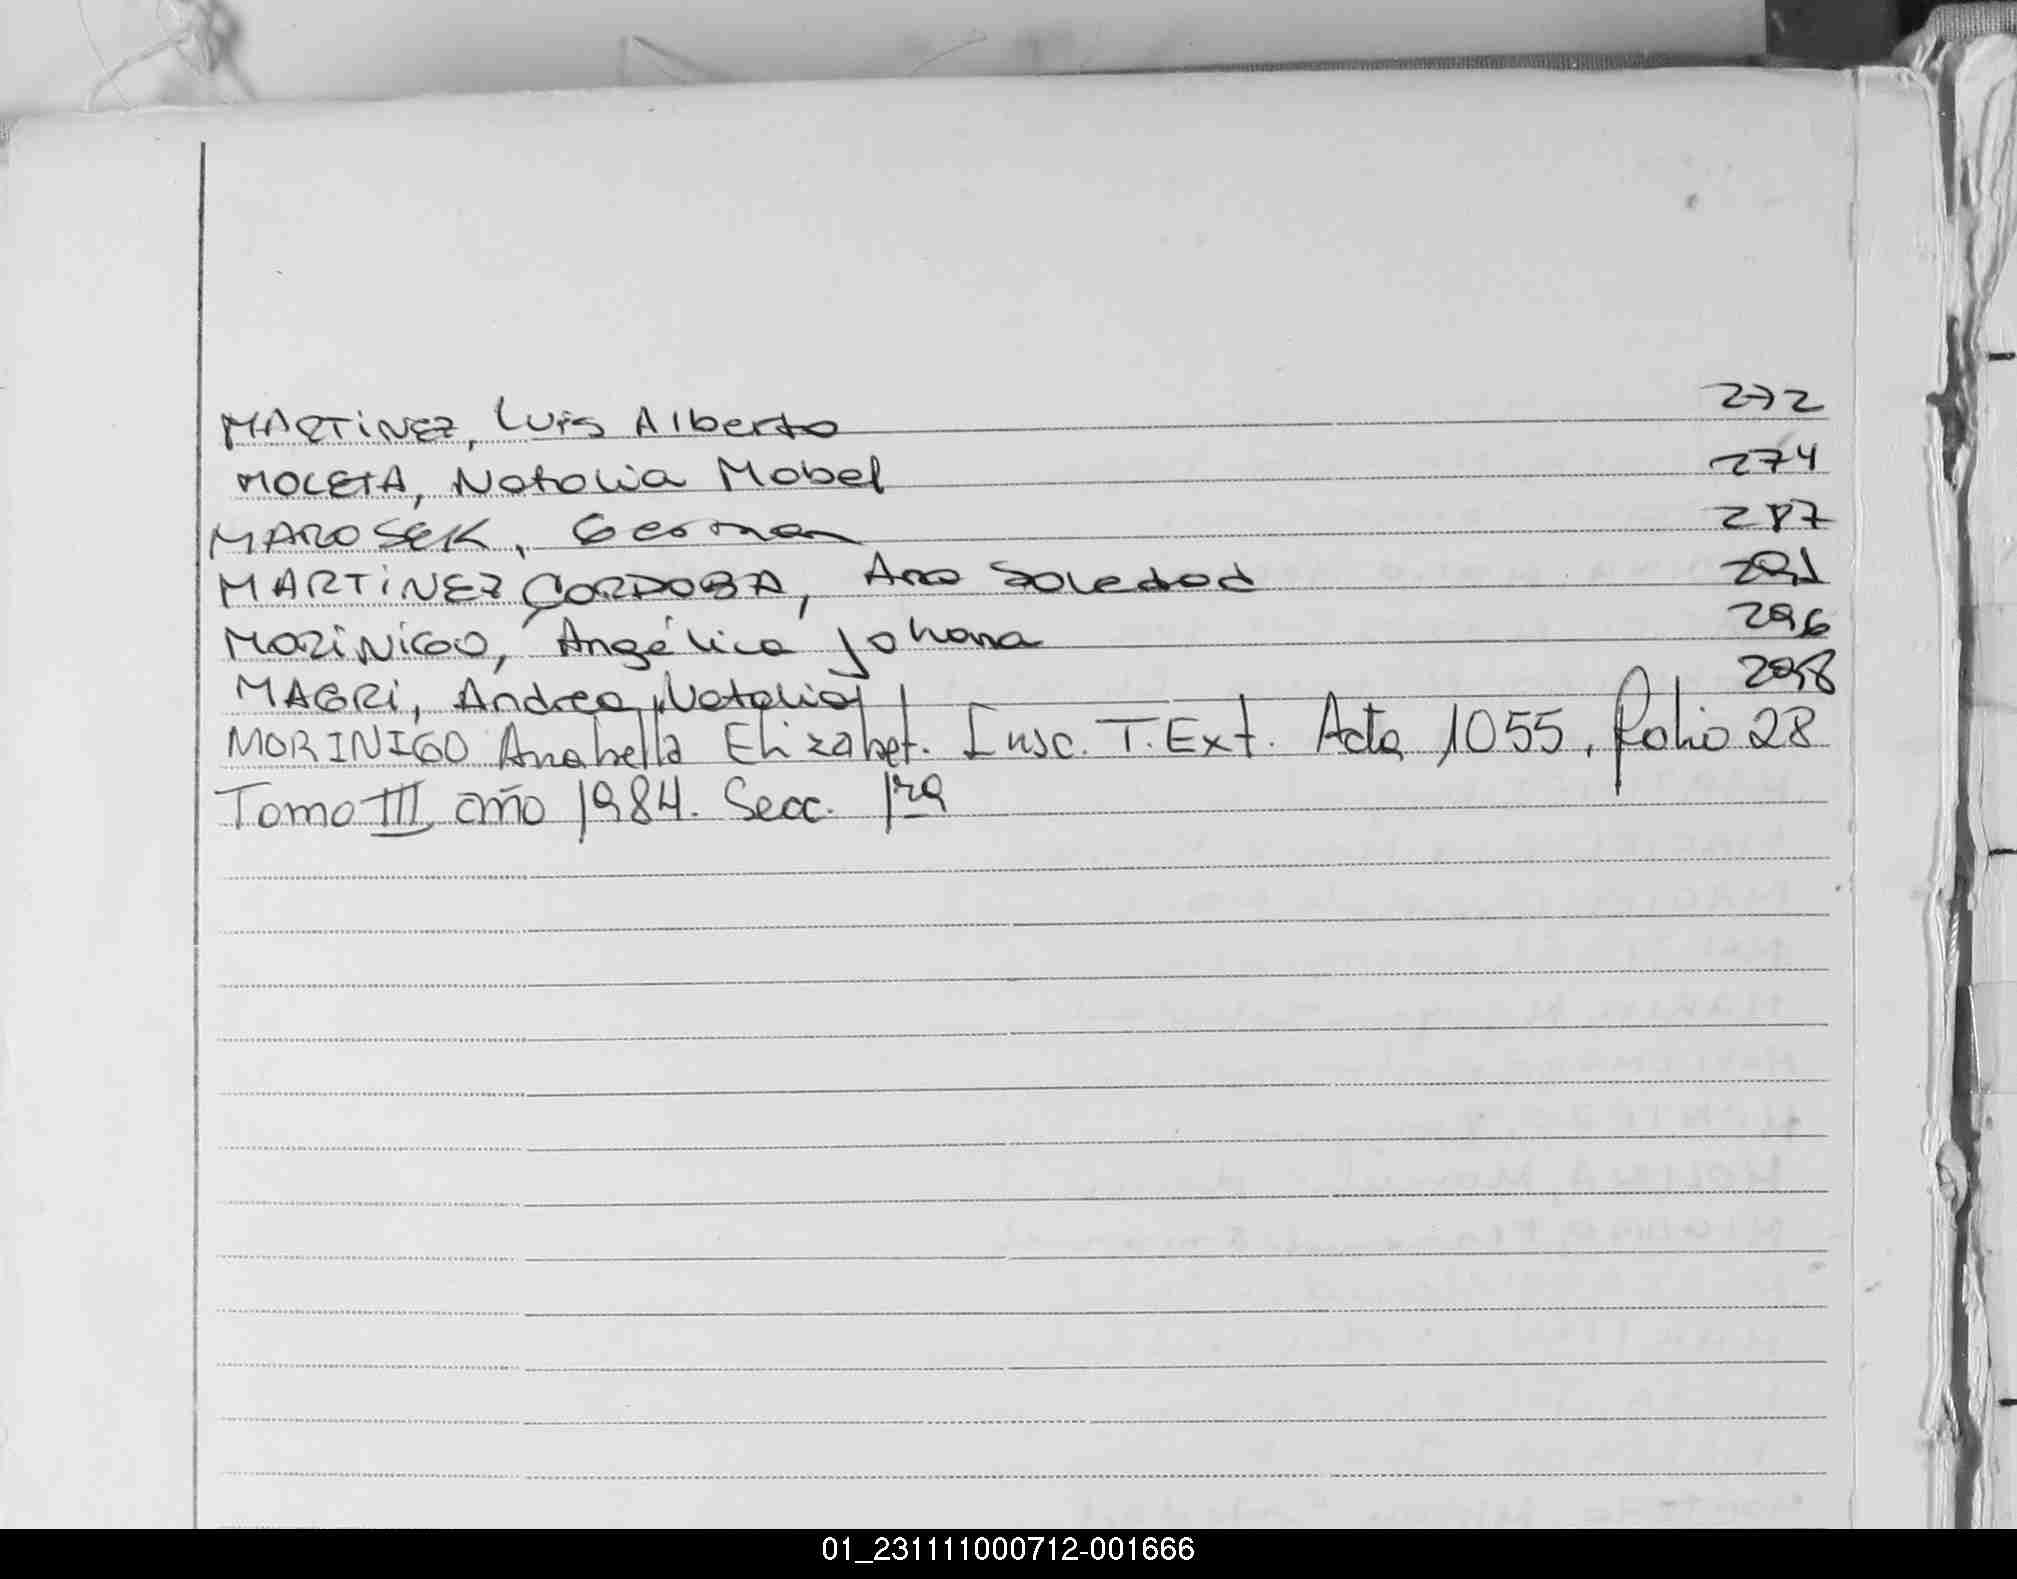 MARTINEZ, Luis Alberto 272
MOLETA, Natalia Mabel 274
MAROSEK, German 287
MARTINEZ CORDOBA, Ana Soledad 291
MORINIGO, Angélica Johana 296
MAGRI, Andrea Natalia 298
MORINIGO Anabella Elizabet. Insc. T. Ext. Acta 1055, folio 28
Tomo III, año 1984. Secc. 1ra
01_231111000712-001666